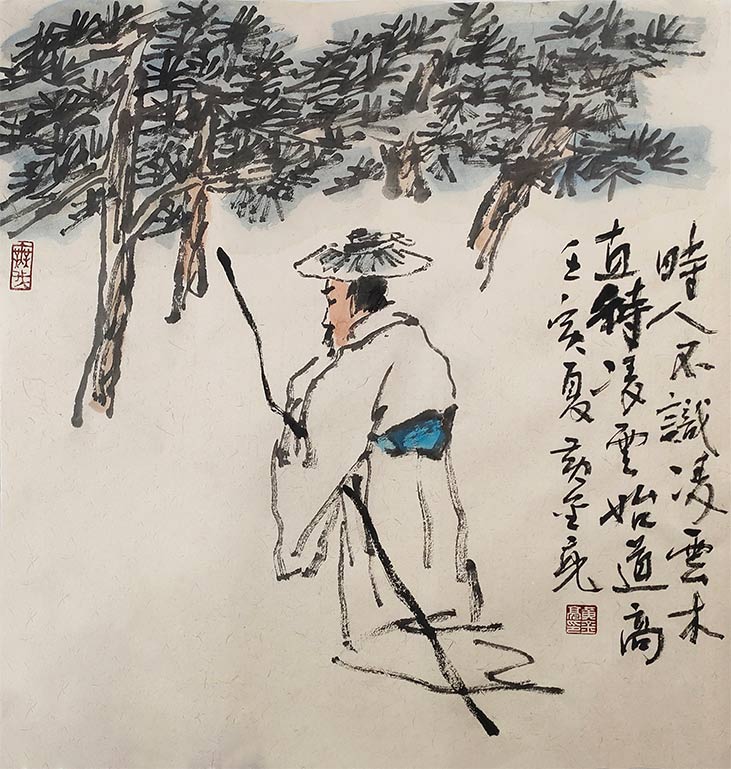 時人不識凌雲木
直待凌雲始道高
壬寅夏